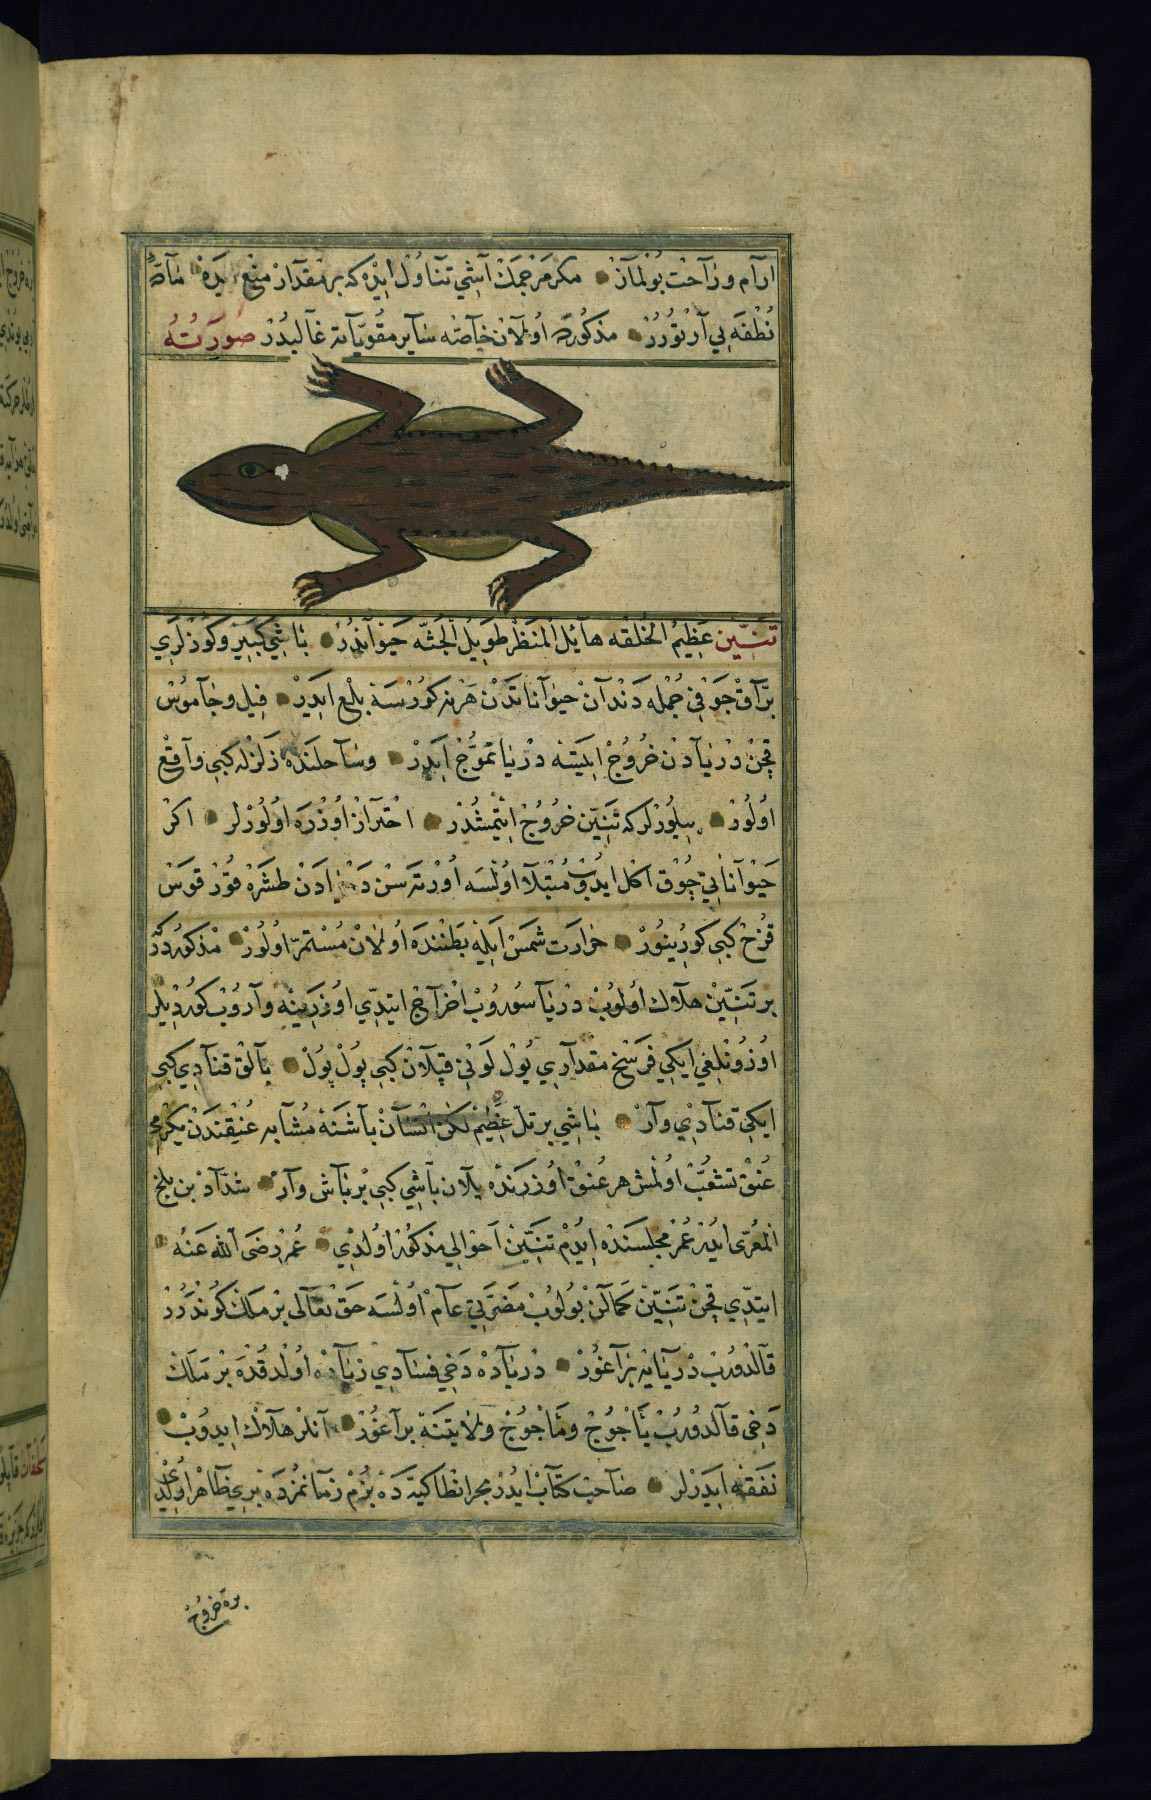 ارآم وراحت بولماز مكر مرجمك آشي تناول ايده كه بر مقدار منع ايده ماصّه
نطفه يي آرتورر مذكوره اولان خاصّه ساير مقوّياته غاليدر صورته
تنّين عظيم الخلقه هايل المنظر طويل الجثّه حيواندر باشي كبير وكوزلري
برّاق جوفي جمله دندان حيواناتدن هرنه كورسه بلع ايدر فيل وجاموش
قچن دريادن خروج ايليسه دريا تموّج ايدر وساحلنده زلزله كبي واقع
اولور بيلورلركه تنّين خروج ايتمشدر احتراز اوزره اولورلر اكر
حيواناتي چوق اكل ايدوب مبتلا اولسه اورته سن دريادن طشره قور قوس
قزح كبي كورينور حرارت شمس ايله بطننده اولان مستمرّ اولور مذكوردر
بر تنّين هلاك اولوب دريا سوروب اخراج ايتدي اوزرينه واروب كورديلر
اوزونلغي ايكي فرسخ مقداري يول لوني قپلان كبي پول پول بالق قنادي كبي
ايكي قنادي وار باشي بر تلّ عظيم لكن انسان باشنه مشابه عنيقندن يكرمي
عنق تشعّب اولمش هر عنق اوزرنده يلان باشي كبي بر باش وار شدّاد بن بلخ
المعرّى ايدر عمر مجلسنده ايدم تنّين احوالي مذكور اولدي عمر رضى الله عنه
ايتدي قچن تنّين كمالن بولوب مضرّتي عام اولسه حق تعالى بر ملك كوندرر
قالدورب دريايه براغور درياده دخي فسادي زياده اولدقده بر ملك
دخى قالدورب ياجوج وماجوج ولايتنه براغور آنلر هلاك ايدوب
نفقه ايدرلر صاحب كتاب ايدر بحر انطاكيه ده بزم زمانمزده بري ظاهر اولدي
بره خروج